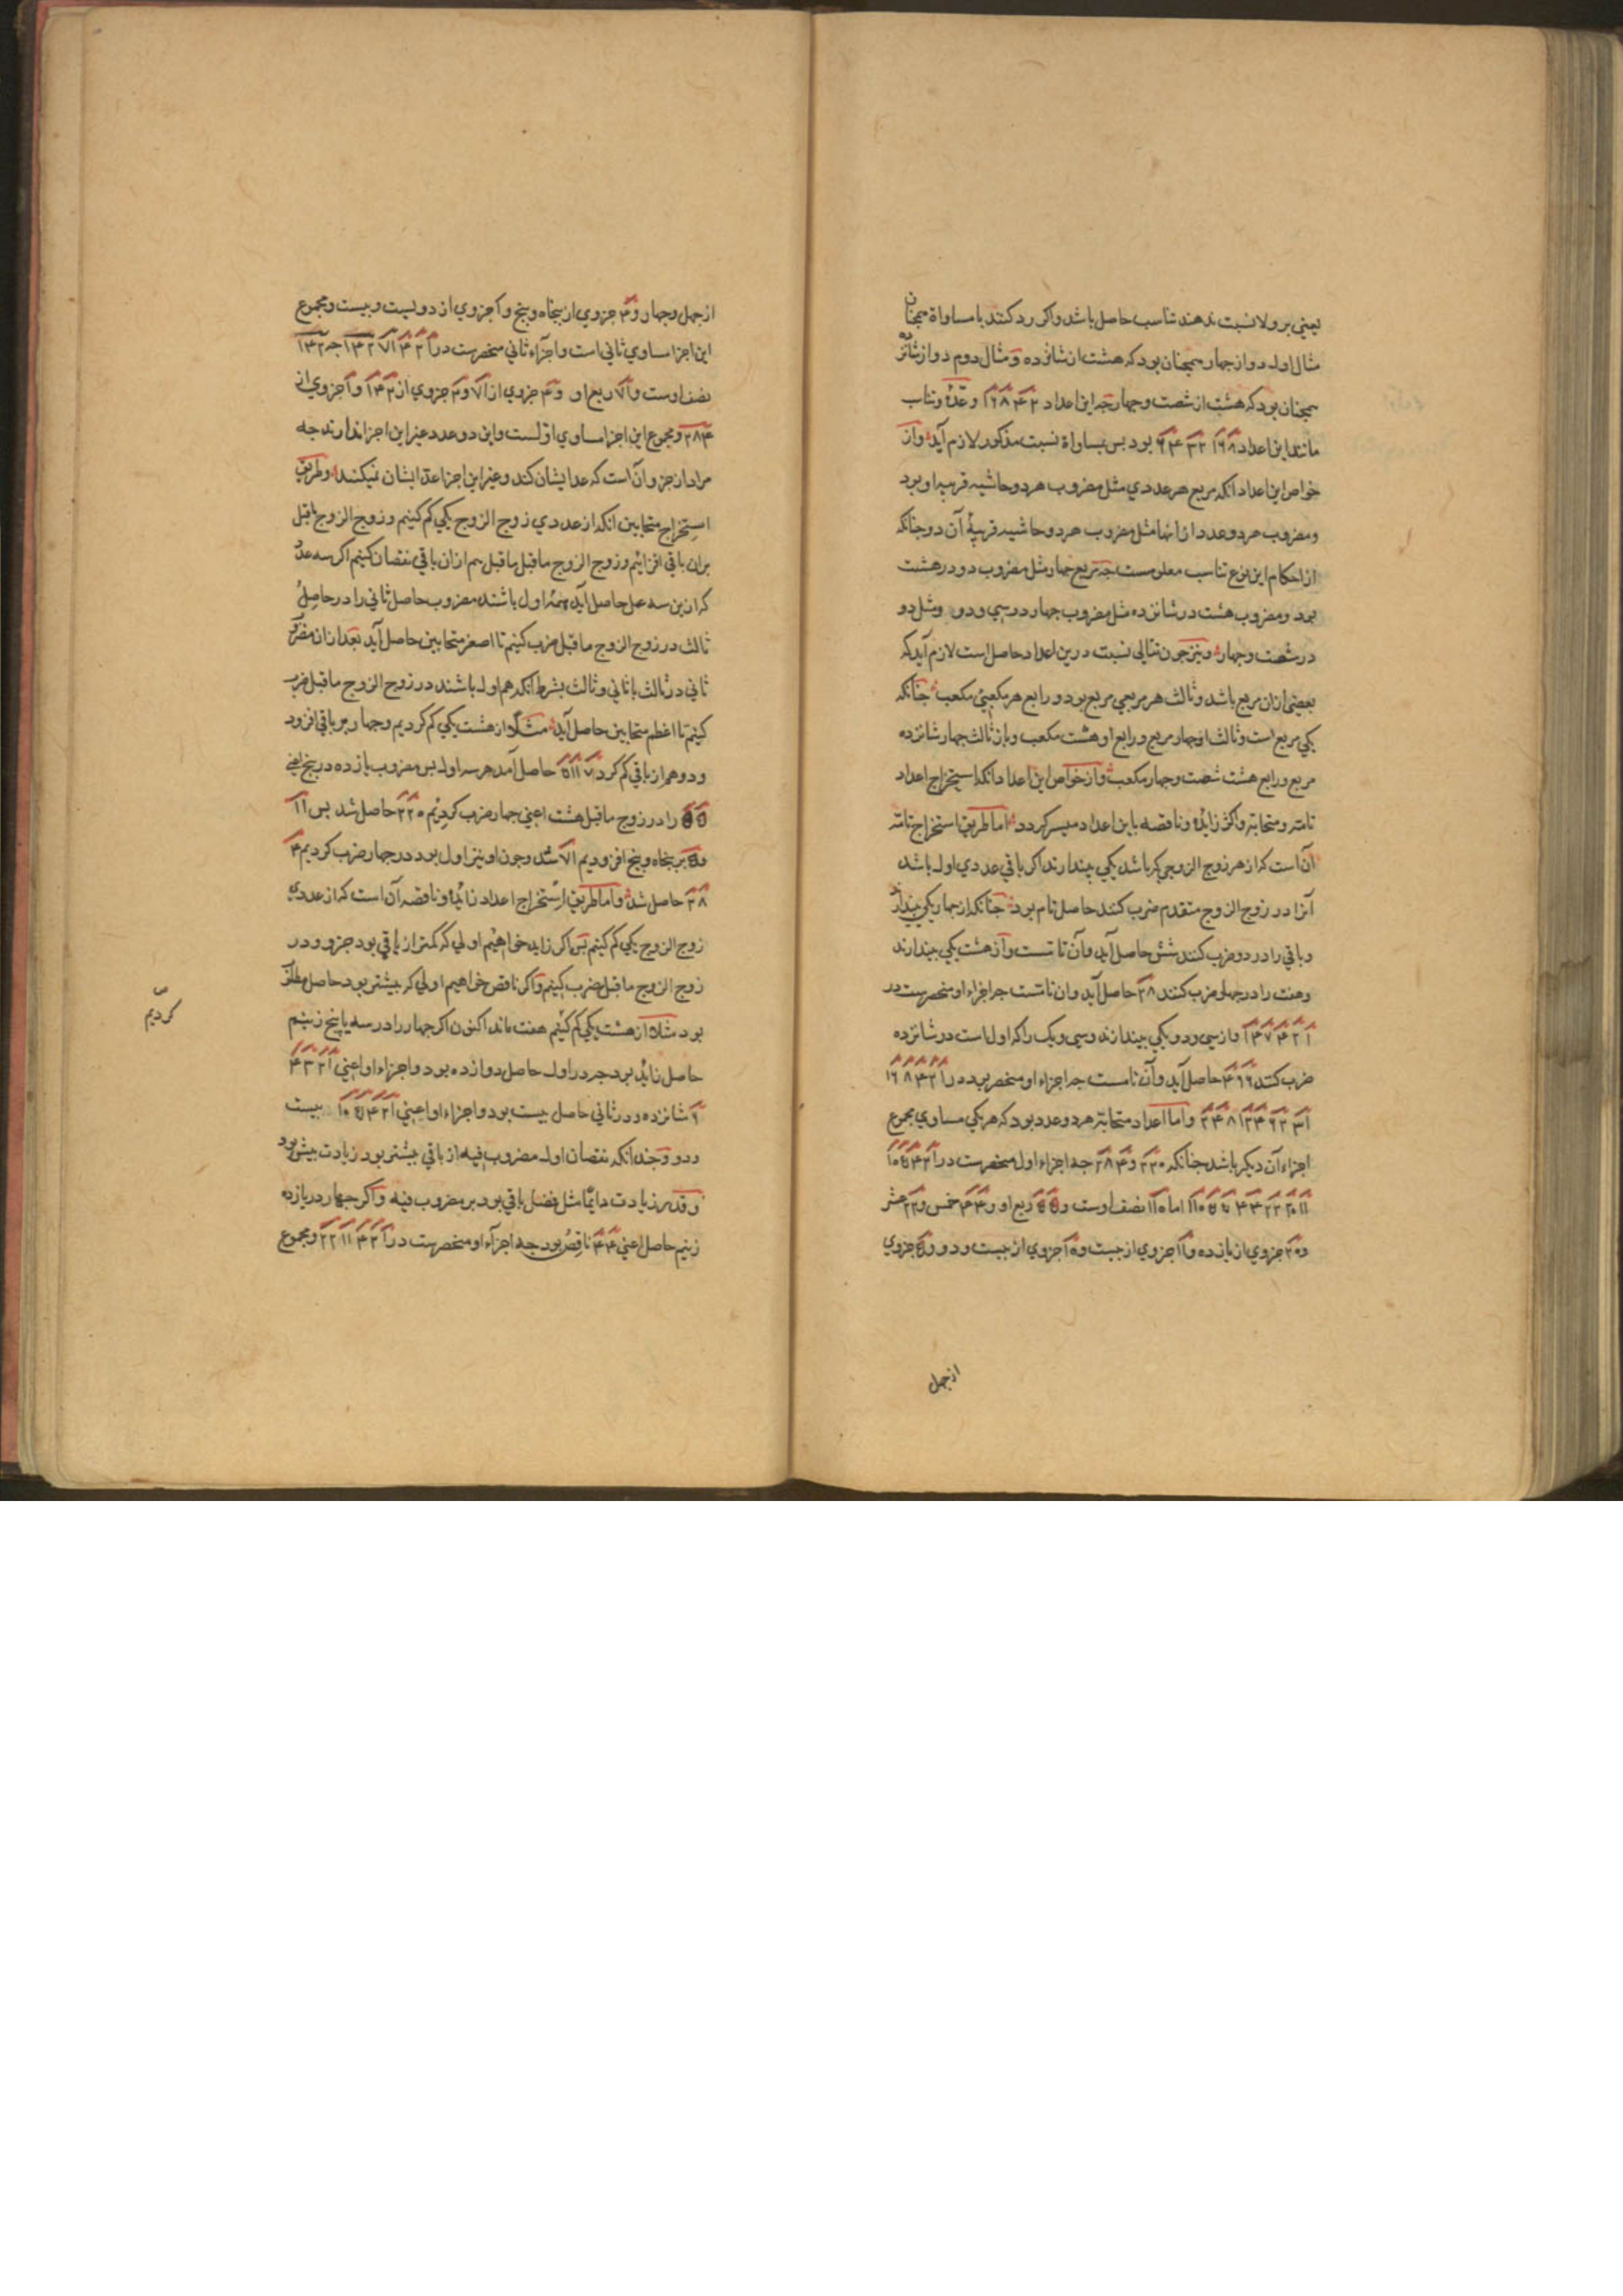 یعنی بر ولا نسبت ندهند تناسب حاصل باشد واکر رد کنند بامساواة همجنان
مثال اول دو از جهار همجنان بود که هشت از شانزده و مثال دوم دو از شانزده
همجنان بود که هشت از شصت وجهار جه این اعداد ۲ ۴ ۸ ۱۶ و عدّة وتناسب
مانند این اعداد ۸ ۱۶ ۳۲ ۶۴ بود بس بمساواة نسبت مذکور لازم آید واز
خواص این اعداد انکه مربع هر عددی مثل مضروب هر دو حاشیه قریبه او بود
ومضروب هر دو عدد از انها مثل مضروب هر دو حاشیه قریبهٔ آن دو جنانکه
از احکام این نوع تناسب معلومست جه مربع جهار مثل مضروب دو در هشت
بود ومضروب هشت در شانزده مثل مضروب جهار در سی ودو ومثل دو
در شصت وجهار ونیز جون تتالی نسبت درین اعداد حاصل است لازم آید که
بعضی ازان مربع باشد وثالث هر مربعی مربع بود و رابع هر مکعبی مکعب جنانکه
یکی مربع است وثالث او جهار مربع و رابع او هشت مکعب وباز ثالث جهار شانزده
مربع ورابع هشت شصت وجهار مکعب واز خواص این اعداد انکه استخراج اعداد
تامّه ومتحابّه واکثر زایده وناقصه باین اعداد میسر کردد اما طریق استخراج تامّه
آن است که از هر زوج الزوجی که باشد یکی بیندازند اکر باقی عددی اول باشد
آنرا در زوج الزوج متقدم ضرب کنند حاصل تام بود جنانکه از جهار یکی بیندازند
وباقی را در دو ضرب کنند شش حاصل آید وآن تامست واز هشت یکی بیندازند
وهفت را در جهار ضرب کنند ۲۸ حاصل آید وان تامست جه اجزاء او منحصرست در
۱ ۲ ۴ ۷ ۱۴ واز سی ودو یکی بیندازند وسی ویک را که اول است در شانزده
ضرب کنند ۴۹۶ حاصل آید وآن تامست جه اجزاء او منحصر بود در ۱ ۲ ۴ ۸ ۱۶
۳۱ ۶۲ ۱۲۴ ۲۴۸ واما اعداد متحابّه هر دو عدد بود که هر یکی مساوی مجموع
اجزاء آن دیکر باشد جنانکه ۲۲۰ و ۲۸۴ جه اجزاء اول منحصرست در ۱ ۲ ۴ ۵ ۱۰
۱۱ ۲۰ ۲۲ ۴۴ ۵۵ ۱۱۰ اما ۱۱۰ نصف اوست و ۵۵ ربع او و ۴۴ خمس و ۲۲ عشر
و ۲۰ جزوی از یازده و ۱۱ جزوی از بیست و ۱۰ جزوی از بیست ودو و ۵ جزوی
از جهل
از جهل وجهار و ۴ جزوی از بنجاه وبنج و ۱ جزوی از دویست وبیست ومجموع
این اجزا مساوی ثانی است واجزاء ثانی منحصرست در ۱ ۲ ۴ ۷۱ ۱۴۲ جه ۱۴۲
نصف اوست و ۷۱ ربع او و ۴ جزوی از ۷۱ و ۲ جزوی از ۱۴۲ و ۱ جزوی از
۲۸۴ ومجموع این اجزا مساوی اوّلست واین دو عدد غیر این اجزا ندارند جه
مراد از جزو آن است که عدّ ایشان کند وغیر این اجزا عدّ ایشان نمیکنند وطریق
استخراج متحابین انکه از عددی زوج الزوج یکی کم کنیم و زوج الزوج ماقبل
بران باقی افزائیم وزوج الزوج ماقبل ماقبل هم ازان باقی نقصان کنیم اکر سه عدد
که ازین سه عمل حاصل آید همهٔ اول باشند مضروب حاصل ثانی را در حاصل
ثالث در زوج الزوج ماقبل ضرب کنیم تا اصغر متحابین حاصل آید بعد ازان مضروب
ثانی در ثالث با ثانی وثالث بشرط آنکه هم اول باشند در زوج الزوج ماقبل ضرب
کنیم تا اعظم متحابین حاصل آید مثلاً از هشت یکی کم کردیم وجهار بر باقی افزود
ودو هم از باقی کم کرد ۷ ۱۱ ۵ حاصل آمد هر سه اول بس مضروب یازده در بنج اعنی
۵۵ را در زوج ماقبل هشت اعنی جهار ضرب کردیم ۲۲۰ حاصل شد بس ۱۱
و ۵ بر بنجاه وبنج افزودیم ۷۱ شد وجون او نیز اول بود در جهار ضرب کردیم ۴
۲۸ حاصل شد واما طریق استخراج اعداد زائده وناقصه آن است که از عددی
زوج الزوج یکی کم کنیم بس اکر زاید خواهیم اولی که کمتر از باقی بود جزو ودر
زوج الزوج ماقبل ضرب کنیم واکر ناقص خواهیم اولی که بیشتر بود حاصل مطلوب
بود مثلا از هشت یکی کم کنیم هفت ماند اکنون اکر جهار را در سه یا بنج زنیم
حاصل زاید بود جه در اول حاصل دوازده بود واجزاء او اعنی ۱ ۲ ۳ ۴
۶ شانزده ودر ثانی حاصل بیست بود واجزاء او اعنی ۱ ۲ ۴ ۵ ۱۰ بیست
ودو وجندانکه نقصان اول مضروب فیه از باقی بیشتر بود زیادت بیش بود
وقدر زیادت دایمًا مثل فضل باقی بود بر مضروب فیه واکر جهار در یازده
زنیم حاصل اعنی ۴۴ ناقص بود جه اجزاء او منحصرست در ۱ ۲ ۴ ۱۱ ۲۲ ومجموع
کردیم